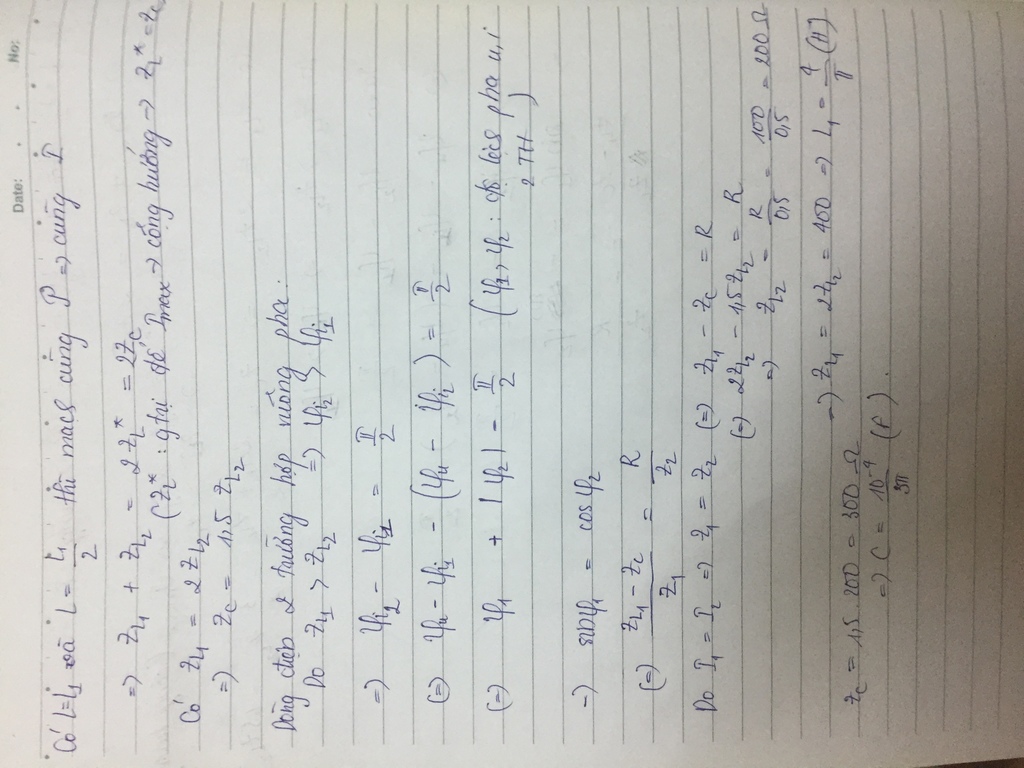 Date: No:
Có L=L₁ và L = L₁/2 thì mạch cùng P => cùng I
=> Z_L₁ + Z_L₂ = 2Z_L* = 2Z_C
(Z_L* : gtrị để I_max → cộng hưởng → Z_L* = Z_C
Có Z_L₁ = 2Z_L₂
=> Z_C = 1,5 Z_L₂
Dòng điện 2 trường hợp vuông pha:
Do Z_L₁ > Z_L₂ => φ_i₂ > φ_i₁
=> φ_i₂ - φ_i₁ = π/2
(=) φ_u - φ_i₁ - (φ_u - φ_i₂) = π/2
(=) φ₁ + |φ₂| - π/2 (φ₁, φ₂ : độ lệch pha u, i
2 TH)
-) sinφ₁ = cosφ₂
(=) (Z_L₁ - Z_C)/Z₁ = R/Z₂
Do I₁ = I₂ => Z₁ = Z₂ (=) Z_L₁ - Z_C = R
(=) 2Z_L₂ - 1,5Z_L₂ = R
=> Z_L₂ = R/0,5 = 100/0,5 = 200 Ω
-) Z_L₁ = 2Z_L₂ = 400 => L₁ = 4/π (H)
Z_C = 1,5.200 = 300 Ω
=> C = 10⁻⁴/3π (F).